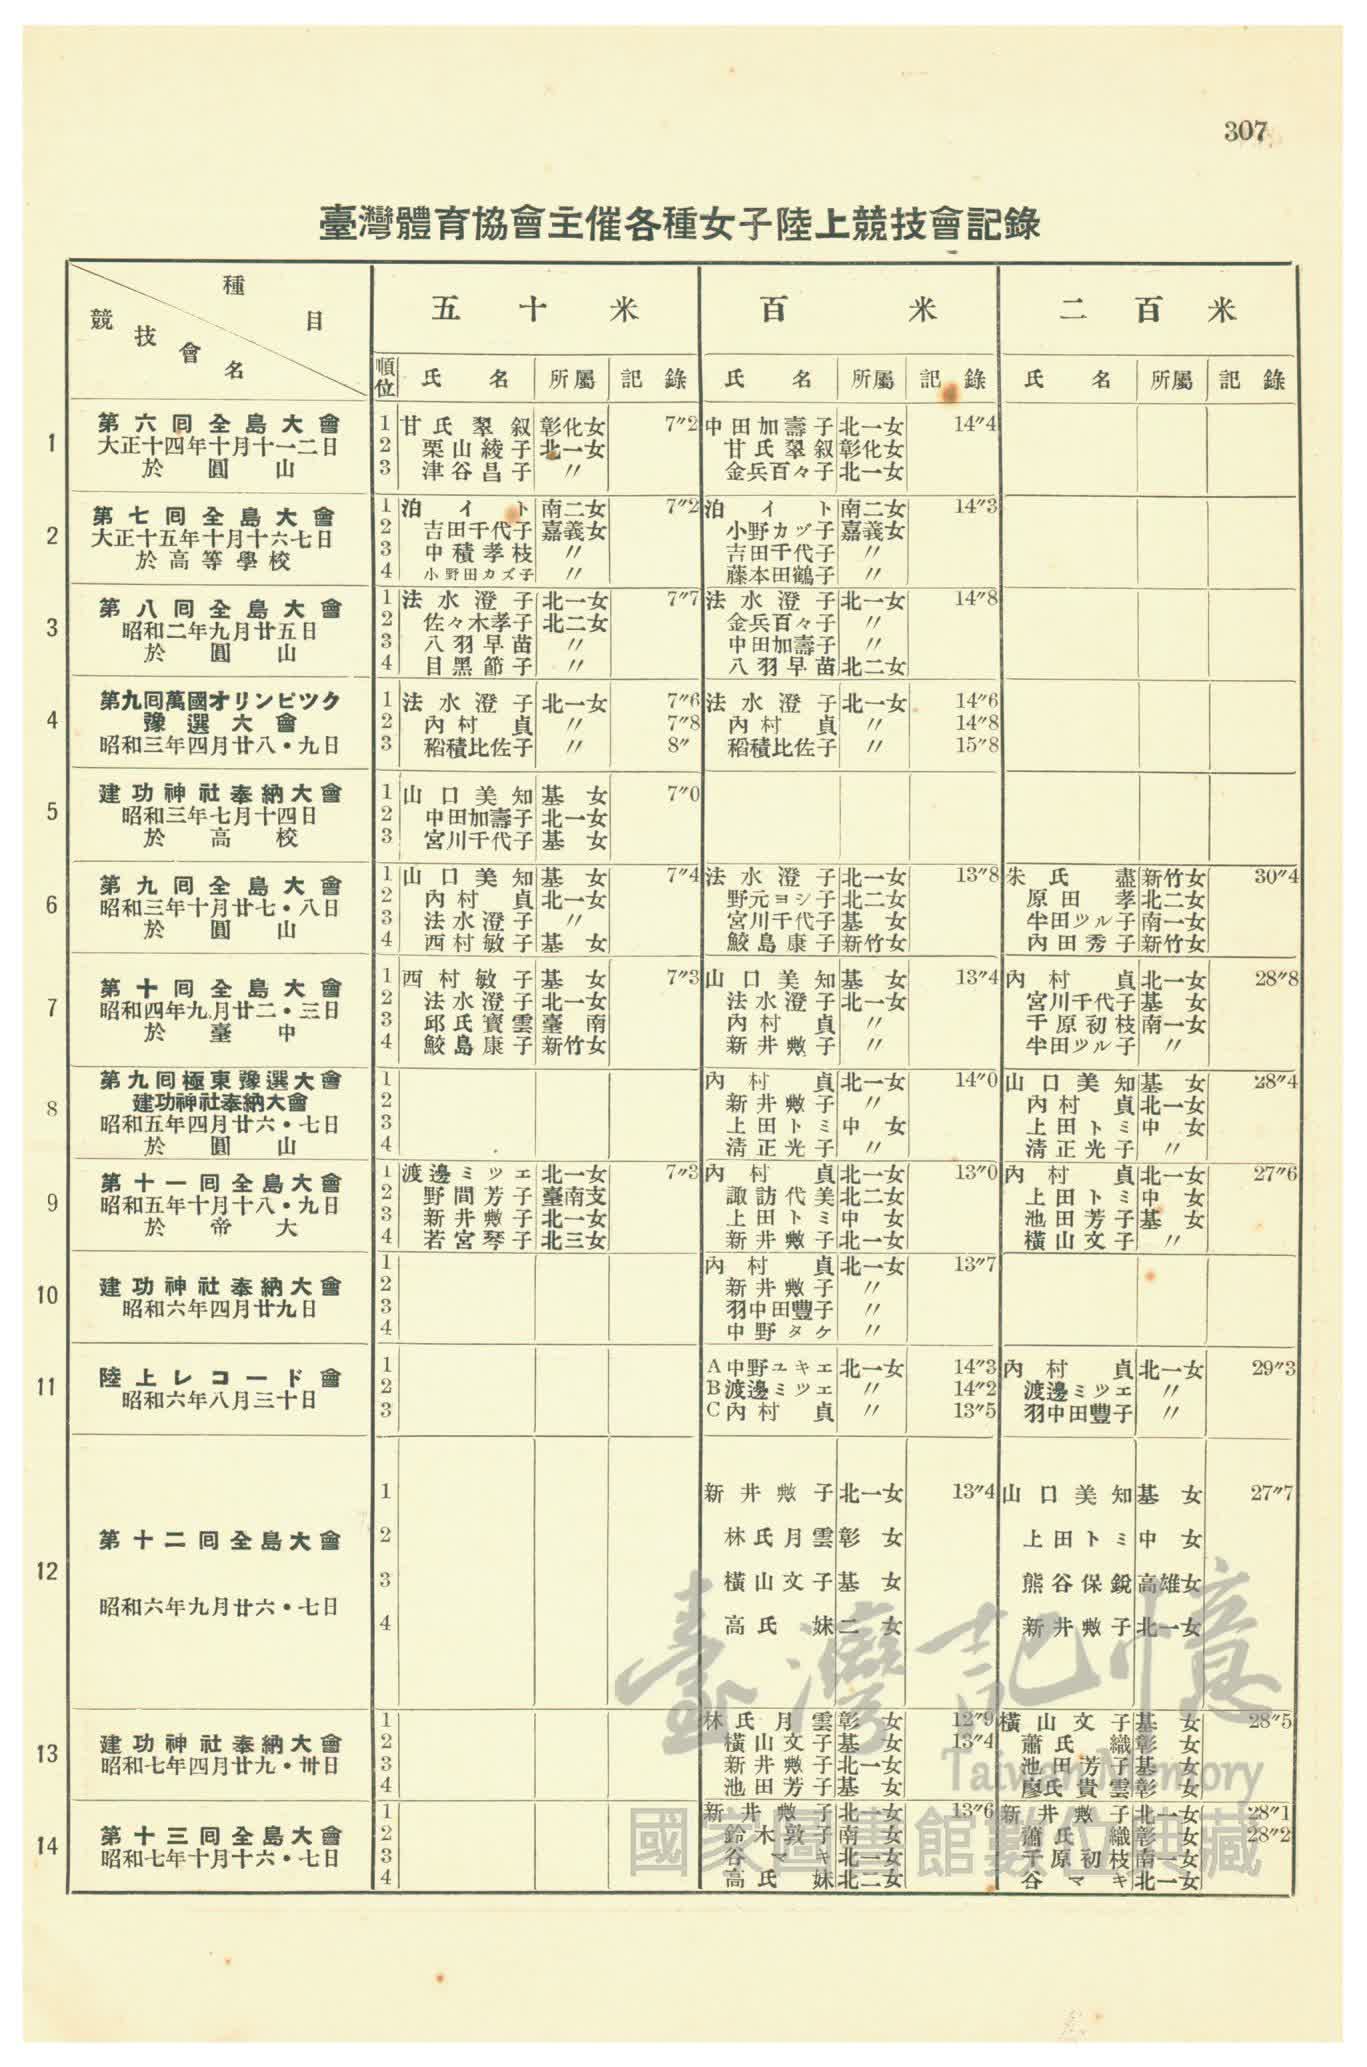 307
臺灣體育協會主催各種女子陸上競技會記錄
種目 競技會名 五十米 百米 二百米
順位 氏名 所屬 記錄 氏名 所屬 記錄 氏名 所屬 記錄
1 第六囘全島大會 大正十四年十月十一二日 於圓山
1 甘氏翠叙 彰化女 7″2 中田加壽子 北一女 14″4
2 栗山綾子 北一女 甘氏翠叙 彰化女
3 津谷昌子 〃 金兵百々子 北一女
2 第七囘全島大會 大正十五年十月十六七日 於高等學校
1 泊イト 南二女 7″2 泊イト 南二女 14″3
2 吉田千代子 嘉義女 小野カヅ子 嘉義女
3 中積孝枝 〃 吉田千代子 〃
4 小野田カズ子 〃 藤本田鶴子 〃
3 第八囘全島大會 昭和二年九月廿五日 於圓山
1 法水澄子 北一女 7″7 法水澄子 北一女 14″8
2 佐々木孝子 北二女 金兵百々子 〃
3 八羽早苗 〃 中田加壽子 〃
4 目黑節子 〃 八羽早苗 北二女
4 第九囘萬國オリンピツク 豫選大會 昭和三年四月廿八・九日
1 法水澄子 北一女 7″6 法水澄子 北一女 14″6
2 內村貞 〃 7″8 內村貞 〃 14″8
3 稻積比佐子 〃 8″ 稻積比佐子 〃 15″8
5 建功神社奉納大會 昭和三年七月十四日 於高校
1 山口美知 基女 7″0
2 中田加壽子 北一女
3 宮川千代子 基女
6 第九囘全島大會 昭和三年十月廿七・八日 於圓山
1 山口美知 基女 7″4 法水澄子 北一女 13″8 朱氏盡 新竹女 30″4
2 內村貞 北一女 野元ヨシ子 北二女 原田孝 北二女
3 法水澄子 〃 宮川千代子 基女 牛田ツル子 南一女
4 西村敏子 基女 鮫島康子 新竹女 內田秀子 新竹女
7 第十囘全島大會 昭和四年九月廿二・三日 於臺中
1 西村敏子 基女 7″3 山口美知 基女 13″4 內村貞 北一女 28″8
2 法水澄子 北一女 法水澄子 北一女 宮川千代子 基女
3 邱氏寶雲 臺南 內村貞 〃 千原初枝 南一女
4 鮫島康子 新竹女 新井㪟子 〃 牛田ツル子 〃
8 第九囘極東豫選大會 建功神社奉納大會 昭和五年四月廿六・七日 於圓山
1 內村貞 北一女 14″0 山口美知 基女 28″4
2 新井㪟子 〃 內村貞 北一女
3 上田トミ 中女 上田トミ 中女
4 清正光子 〃 清正光子 〃
9 第十一囘全島大會 昭和五年十月十八・九日 於帝大
1 渡邊ミツエ 北一女 7″3 內村貞 北一女 13″0 內村貞 北一女 27″6
2 野間芳子 臺南支 諏訪代美 北二女 上田トミ 中女
3 新井㪟子 北一女 上田トミ 中女 池田芳子 基女
4 若宮琴子 北三女 新井㪟子 北一女 橫山文子 〃
10 建功神社奉納大會 昭和六年四月廿九日
1 內村貞 北一女 13″7
2 新井㪟子 〃
3 羽中田豐子 〃
4 中野タケ 〃
11 陸上レコード會 昭和六年八月三十日
1 A中野ユキエ 北一女 14″3 內村貞 北一女 29″3
2 B渡邊ミツエ 〃 14″2 渡邊ミツエ 〃
3 C內村貞 〃 13″5 羽中田豐子 〃
12 第十二囘全島大會 昭和六年九月廿六・七日
1 新井㪟子 北一女 13″4 山口美知 基女 27″7
2 林氏月雲 彰女 上田トミ 中女
3 橫山文子 基女 熊谷保銳 高雄女
4 高氏妹 二女 新井㪟子 北一女
13 建功神社奉納大會 昭和七年四月廿九・卅日
1 林氏月雲 彰女 12″9 橫山文子 基女 28″5
2 橫山文子 基女 13″4 蕭氏織 彰女
3 新井㪟子 北一女 池田芳子 基女
4 池田芳子 基女 廖氏貴雲 彰女
14 第十三囘全島大會 昭和七年十月十六・七日
1 新井㪟子 北一女 13″6 新井㪟子 北一女 28″1
2 鈴木敦子 南一女 蕭氏織 彰女 28″2
3 谷マキ 北一女 千原初枝 南一女
4 高氏妹 北二女 谷マキ 北一女
臺灣記憶
Taiwan Memory
國家圖書館數位典藏